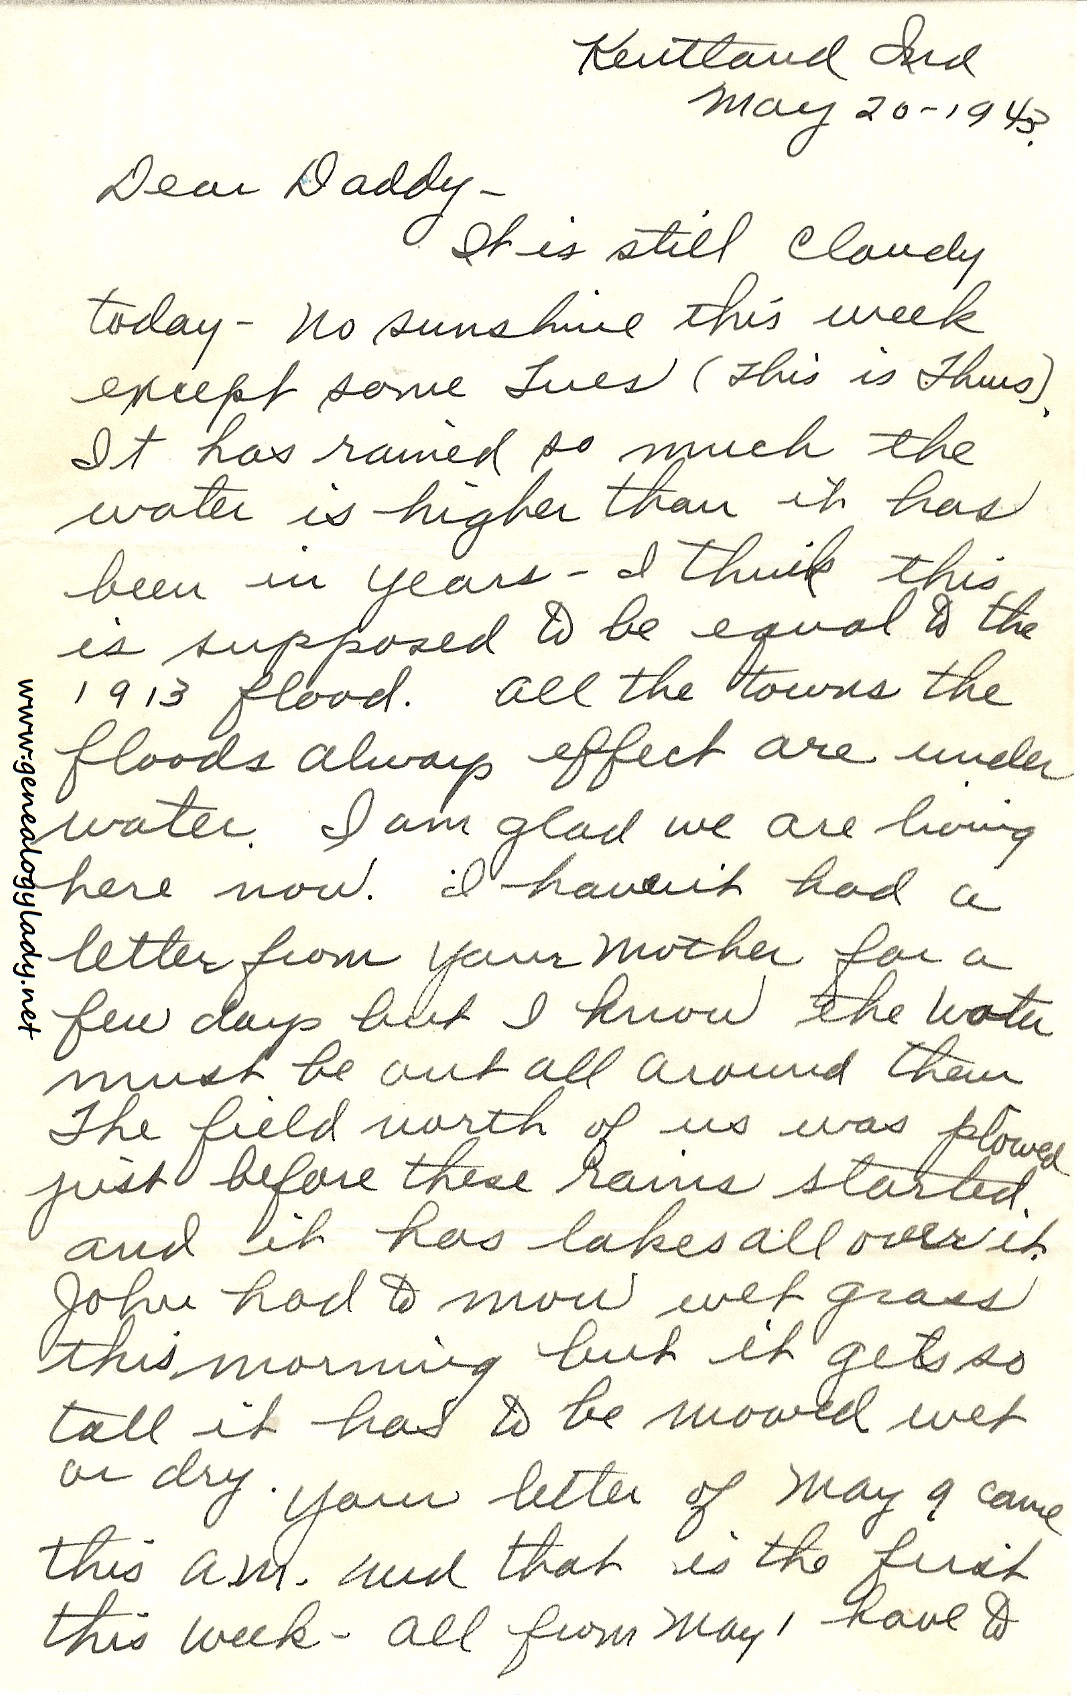 Kentland Ind
May 20-1943.
Dear Daddy-
It is still cloudy
today- No sunshine this week
except some Tues (This is Thurs).
It has rained so much the
water is higher than it has
been in years - I think this
is supposed to be equal to the
1913 flood. All the towns the
floods always effect are under
water. I am glad we are living
here now. I haven't had a
letter from your Mother for a
few days but I know the water
must be out all around them
The field north of us was plowed
just before these rains started.
and it has lakes all over it.
John had to mow wet grass
this morning but it gets so
tall it has to be mowed wet
or dry. Your letter of May 9 came
this A.M. and that is the first
this week - All from May 1 have to
www.genealogylady.net